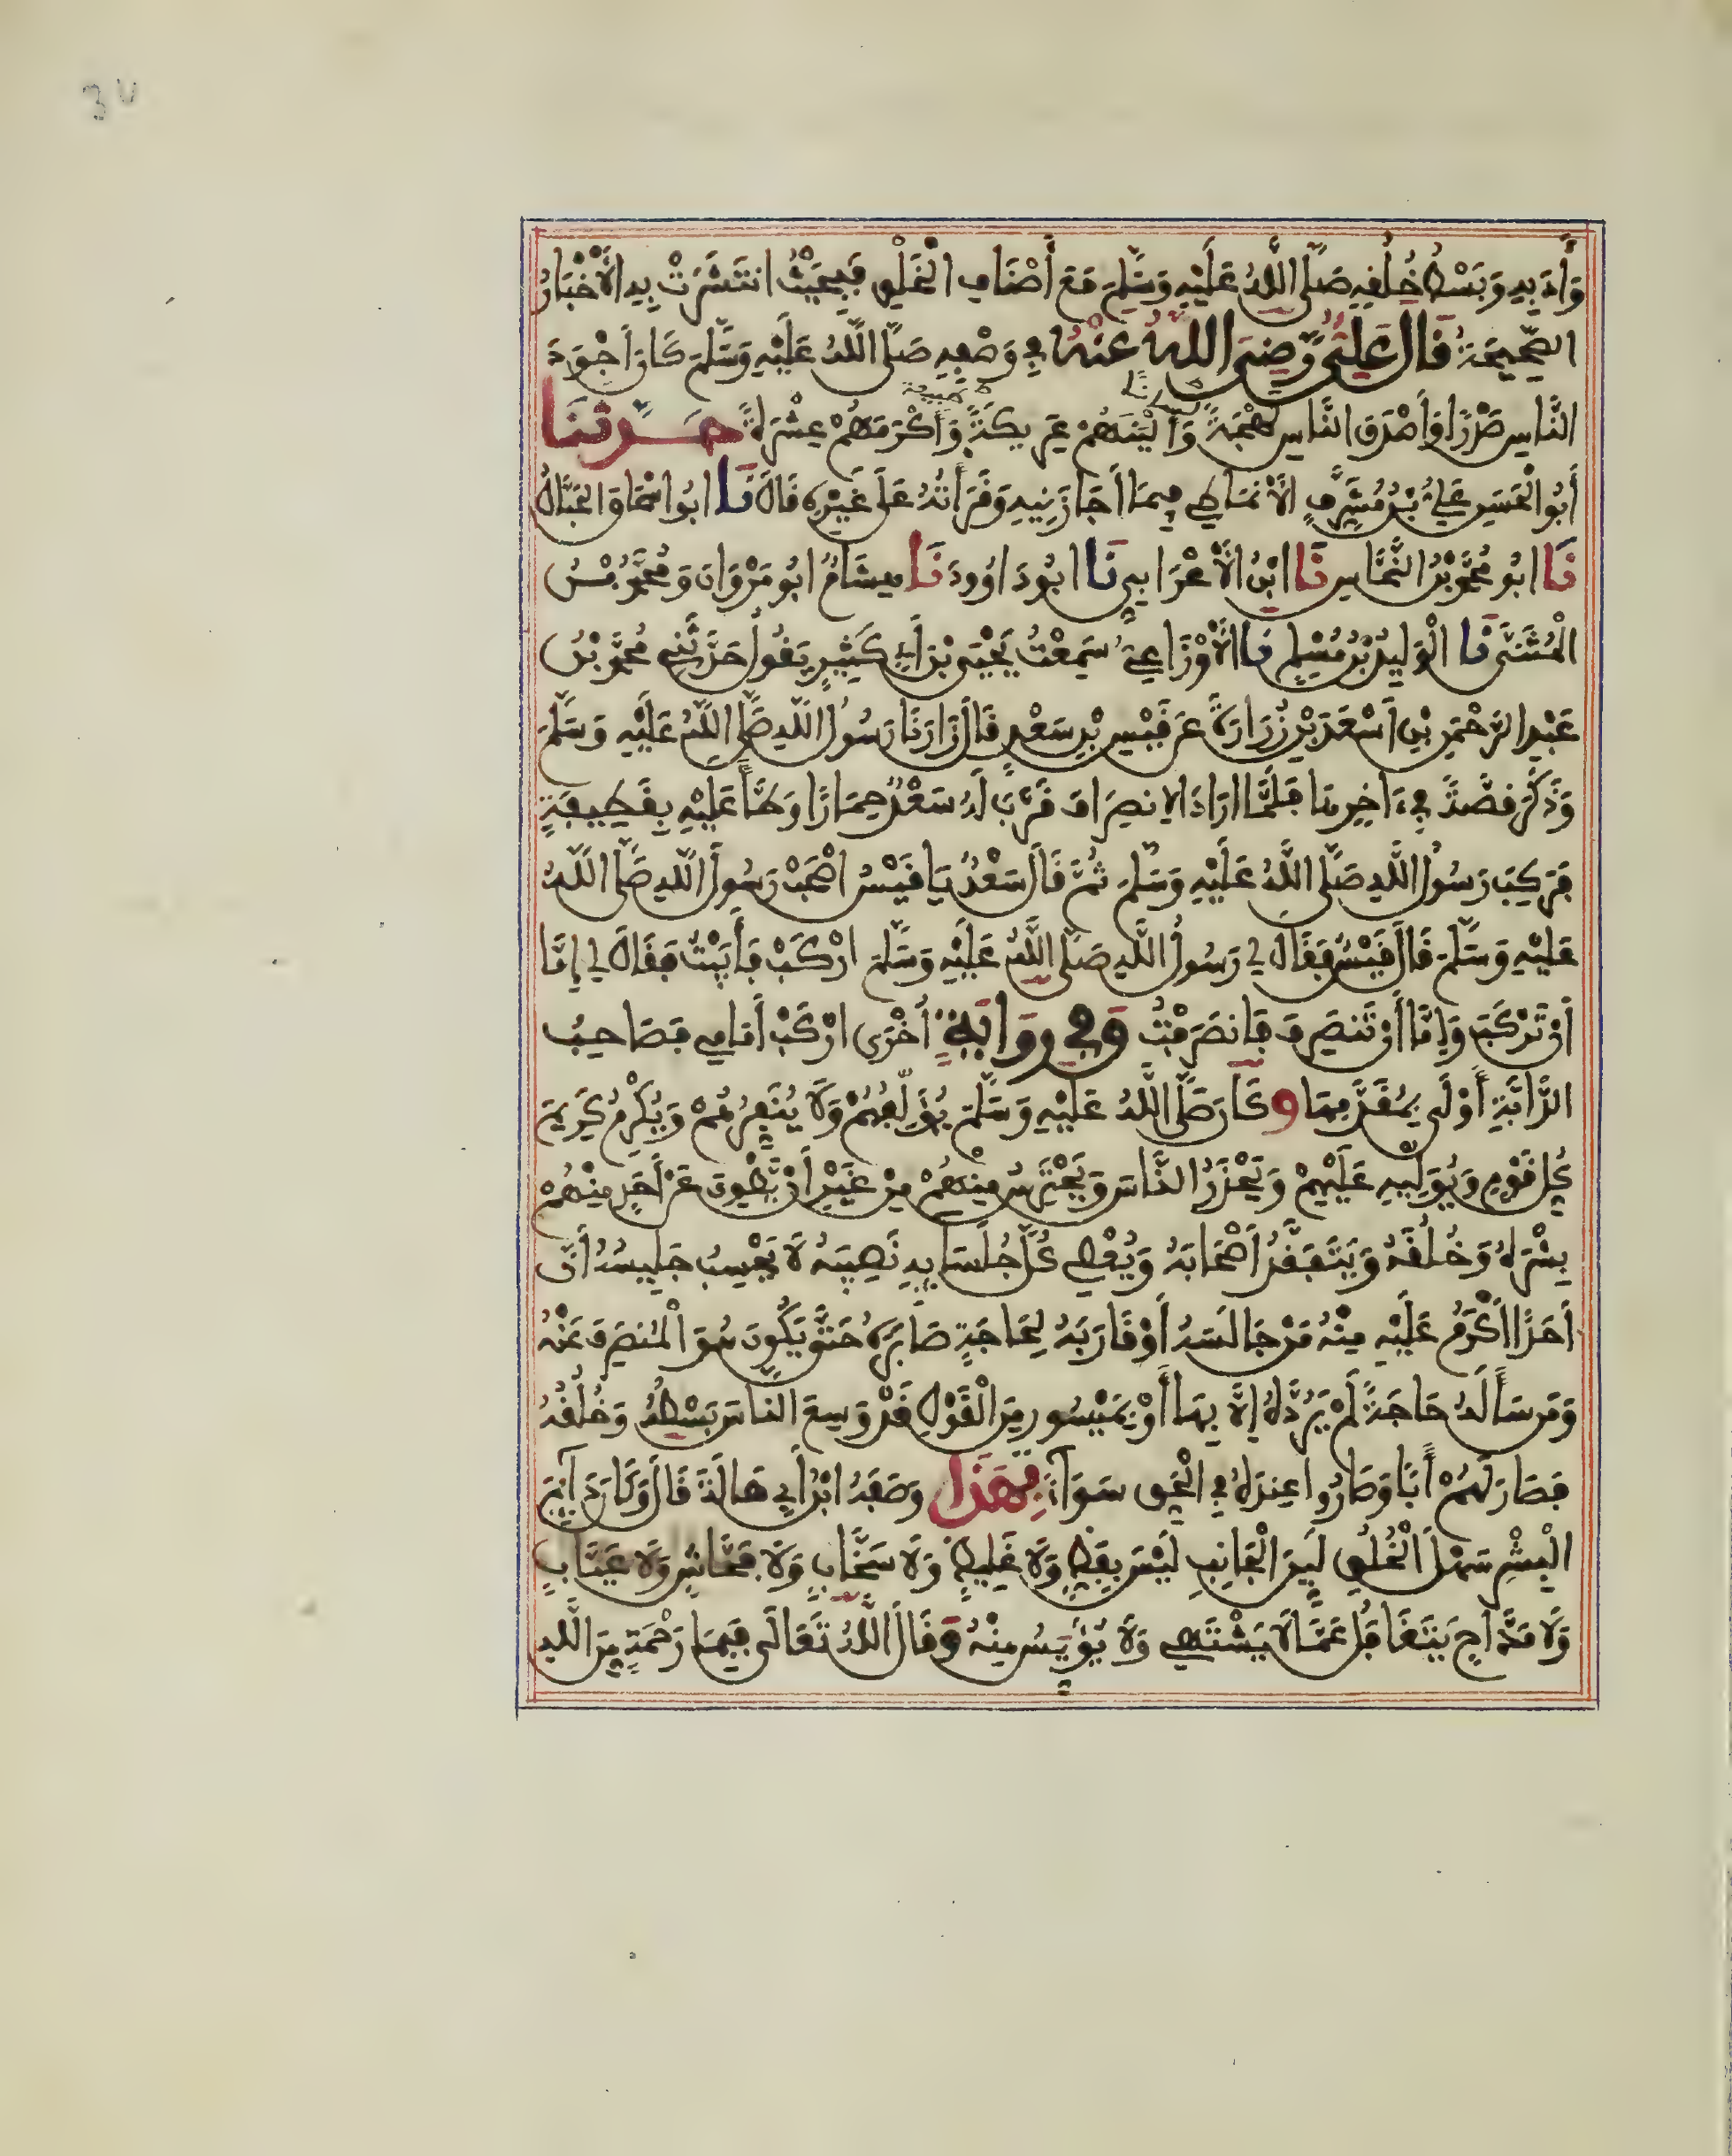 37
وَأَدَبِهِ وَبَسْطُ خُلُقِهِ صَلَّى اللَّهُ عَلَيْهِ وَسَلَّمَ مَعَ أَصْنَافِ الْخَلْقِ فَبِحَيْثُ انتَشَرَتْ بِهِ الْأَخْبَارُ
الصَّحِيحَةُ قَالَ عَلِيٌّ رَّضِيَ اللَّهُ عَنْهُ فِي وَصْفِهِ صَلَّى اللَّهُ عَلَيْهِ وَسَلَّمَ كَانَ أَجْوَدَ
النَّاسِ صَدْرًا وَأَصْدَقَ النَّاسِ لَهْجَةً وَأَلْيَنَهُمْ عَرِيكَةً وَأَكْرَمَهُمْ عِشْرَةً حَدَّثَنَا
أَبُو الْحَسَنِ عَلِيُّ بْنُ مُشَرَّفٍ الْأَنْمَاطِي فِيمَا أَجَازَنِيهِ وَقَرَأْتُهُ عَلَى غَيْرِهِ قَالَ نَا ابُو اسْحَاقَ الْحَبَّالُ
نَا ابُو مُحَمَّدِ بْنُ النَّحَّاسِ نَا ابْنُ الْأَعْرَابِي نَا ابُو دَاوُودَ نَا هِشَامٌ ابُو مَرْوَانَ وَمُحَمَّدُ بْنُ
الْمُثَنَّى نَا الْوَلِيدُ بْنُ مُسْلِمٍ نَا الْأَوْزَاعِيُّ سَمِعْتُ يَحْيَى بْنَ أَبِي كَثِيرٍ يَقُولُ حَدَّثَنِي مُحَمَّدُ بْنُ
عَبْدِ الرَّحْمَنِ بْنِ أَسْعَدَ بْنِ زُرَارَةَ عَن قَيْسِ بْنِ سَعْدٍ قَالَ زَارَنَا رَسُولُ اللَّهِ صَلَّى اللَّهُ عَلَيْهِ وَسَلَّمَ
وَذَكَرَ قِصَّةً فِي ءَاخِرِهَا فَلَمَّا ارَادَ الِانصِرَافَ قَرَّبَ لَهُ سَعْدٌ حِمَارًا وَطَّأَ عَلَيْهِ بِقَطِيفَةٍ
فَرَكِبَ رَسُولُ اللَّهِ صَلَّى اللَّهُ عَلَيْهِ وَسَلَّمَ ثُمَّ قَالَ سَعْدٌ يَا قَيْسُ اصْحَبْ رَسُولَ اللَّهِ صَلَّى اللَّهُ
عَلَيْهِ وَسَلَّمَ قَالَ قَيْسٌ فَقَالَ لِي رَسُولُ اللَّهِ صَلَّى اللَّهُ عَلَيْهِ وَسَلَّمَ ارْكَبْ فَأَبَيْتُ فَقَالَ لِي إِمَّا
أَن تَرْكَبَ وَإِمَّا أَن تَنصَرِفَ فَانصَرَفْتُ وَفِي رِوَايَةٍ أُخْرَى ارْكَبْ أَمَامِي فَصَاحِبُ
الدَّابَّةِ أَوْلَى بِمُقَدَّمِهَا وَكَانَ صَلَّى اللَّهُ عَلَيْهِ وَسَلَّمَ يُؤَلِّفُهُمْ وَلَا يُنَفِّرُهُمْ وَيُكْرِمُ كَرِيمَ
كُلِّ قَوْمٍ وَيُوَلِّيهِ عَلَيْهِمْ وَيَحْذَرُ النَّاسَ وَيَحْتَرِسُ مِنْهُمْ مِنْ غَيْرِ أَن يَّطْوِيَ عَنْ أَحَدٍ مِنْهُمْ
بِشْرَهُ وَخُلُقَهُ وَيَتَفَقَّدُ أَصْحَابَهُ وَيُعْطِي كُلَّ جُلَسَائِهِ نَصِيبَهُ لَا يَحْسِبُ جَلِيسُهُ أَنَّ
أَحَدًا أَكْرَمُ عَلَيْهِ مِنْهُ مَن جَالَسَهُ أَوْ قَارَبَهُ لِحَاجَةٍ صَابَرَهُ حَتَّى يَكُونَ هُوَ الْمُنصَرِفَ عَنْهُ
وَمَن سَأَلَهُ حَاجَةً لَمْ يَرُدَّهُ إِلَّا بِهَا أَوْ بِمَيْسُورٍ مِنَ الْقَوْلِ قَدْ وَسِعَ النَّاسَ بَسْطُهُ وَخُلُقُهُ
فَصَارَ لَهُمْ أَبًا وَصَارُوا عِندَهُ فِي الْحَقِّ سَوَاءً بِهَذَا وَصَفَهُ ابْنُ أَبِي هَالَةَ قَالَ وَكَانَ دَائِمَ
الْبِشْرِ سَهْلَ الْخُلُقِ لَيِّنَ الْجَانِبِ لَيْسَ بِفَظٍّ وَلَا غَلِيظٍ وَلَا سَخَّابٍ وَلَا فَحَّاشٍ وَلَا عَيَّابٍ
وَلَا مَدَّاحٍ يَتَغَافَلُ عَمَّا لَا يَشْتَهِي وَلَا يُؤْيِسُ مِنْهُ وَقَالَ اللَّهُ تَعَالَى فَبِمَا رَحْمَةٍ مِنَ اللَّهِ